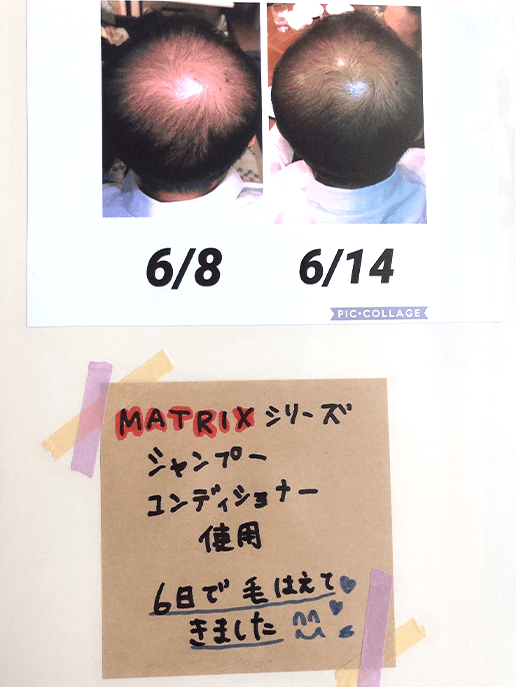 6/8 6/14
PIC•COLLAGE
MATRIX シリーズ
シャンプー
コンディショナー
使用
6日で毛はえて
きました